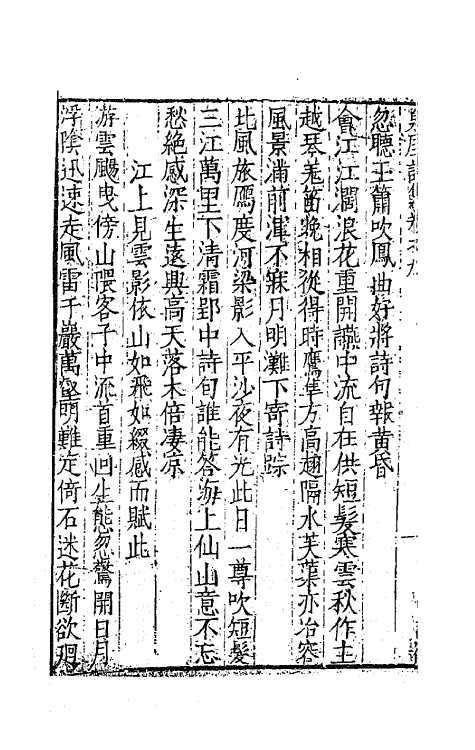 忽聽玉簫吹鳳曲好將詩句報黃昏
會江江濶浪花重開讌中流自在供短髮寒雲秋作主
越琴羗笛晚相從得時鷹隼方高趐隔水芙蕖亦冶容
風景滿前渾不寐月明灘下寄詩踪
北風旅鴈度河梁影入平沙夜有光此日一尊吹短髮
三江萬里下清霜郢中詩句誰能答海上仙山意不忘
愁絕感深生遠興高天落木倍凄凉
江上見雲影依山如飛如綴感而賦此
游雲颺曳傍山隈客子中流首重回生態忽驚開日月
浮陰迅速走風雷千巖萬壑明難定倚石迷花斷欲廻